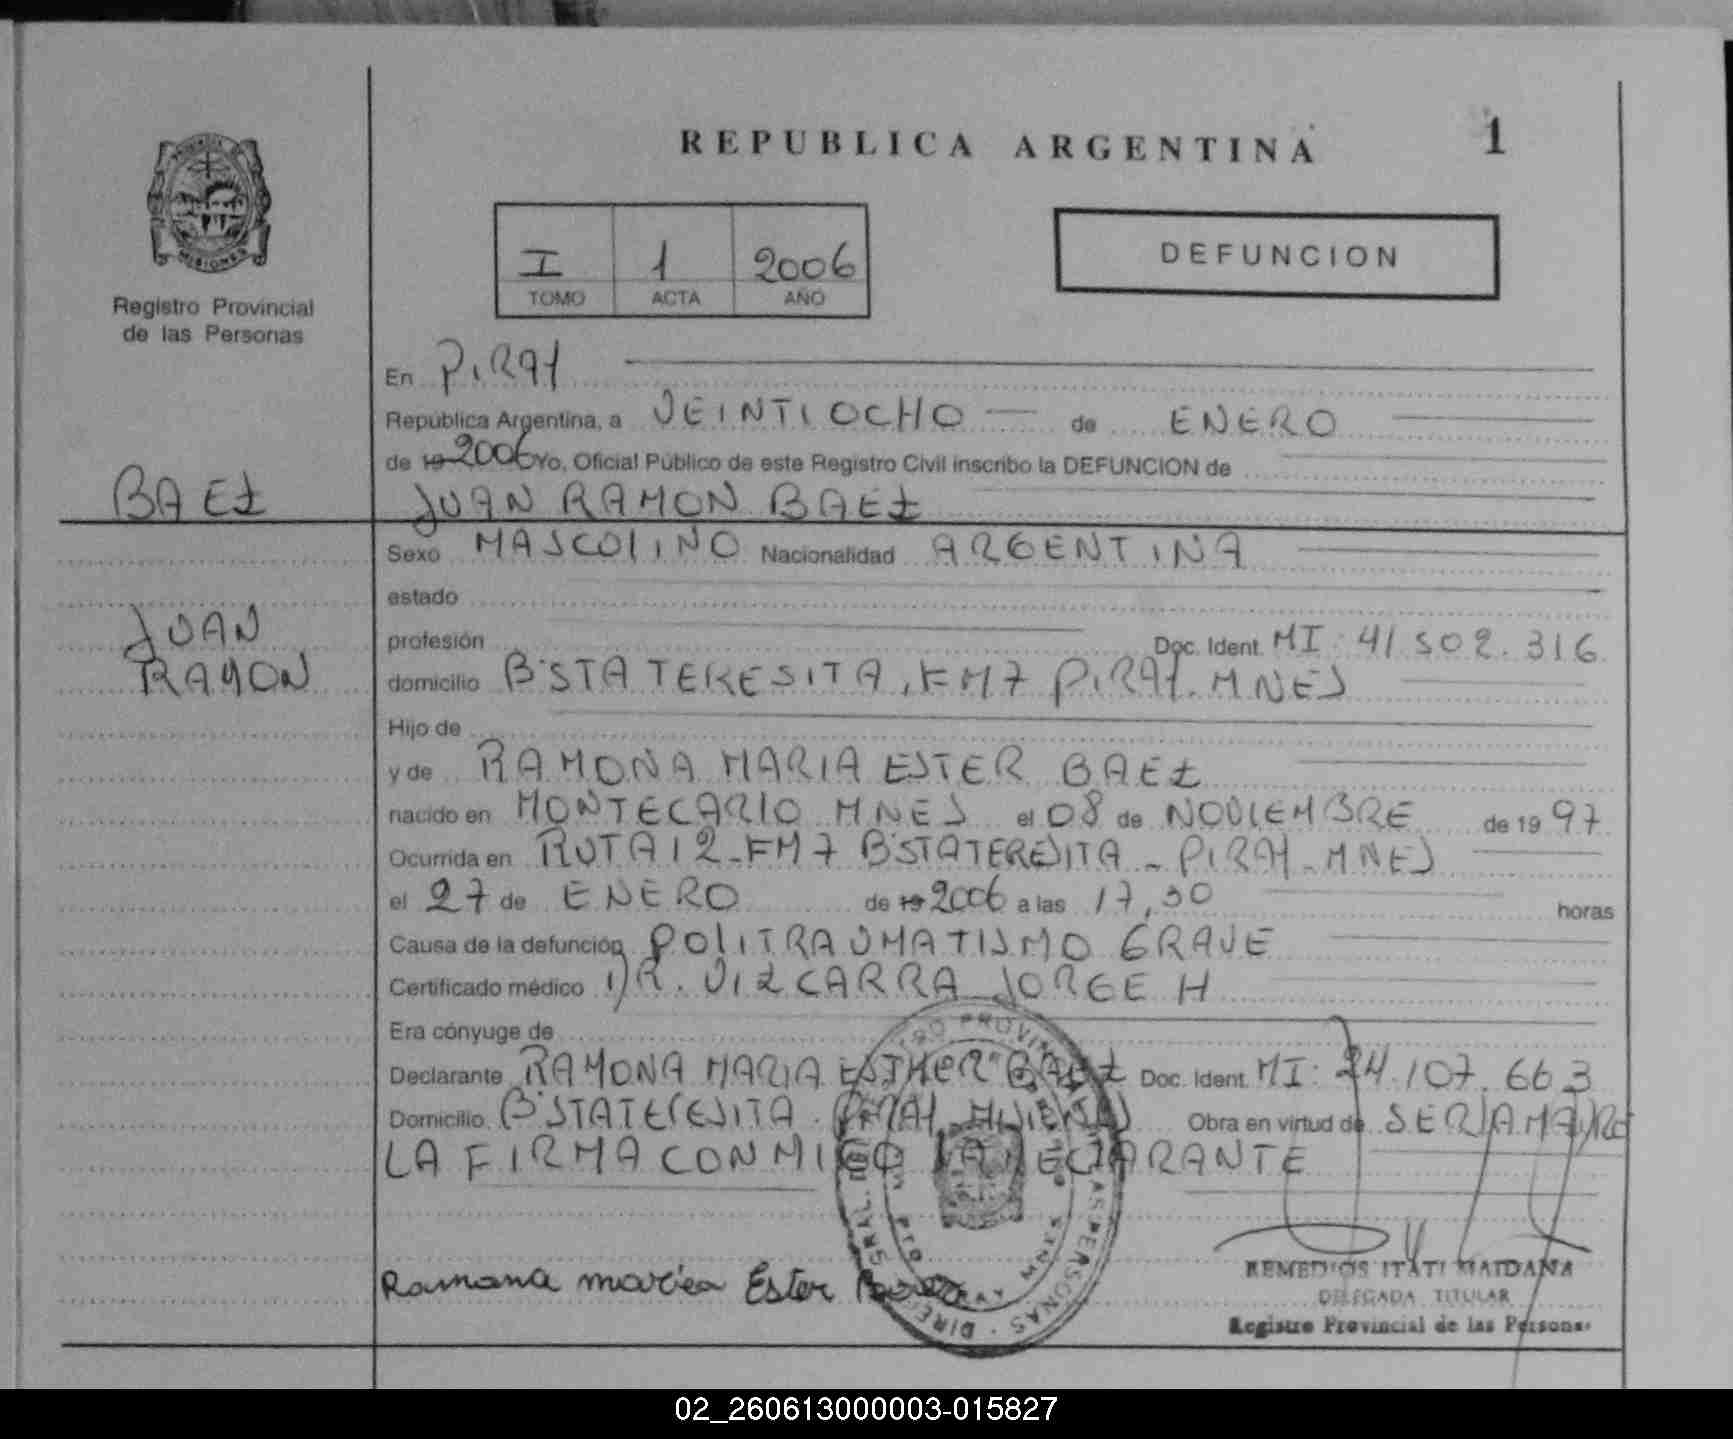 REPUBLICA ARGENTINA
1
I 1 2006
TOMO ACTA AÑO
DEFUNCION
MISIONES
Registro Provincial
de las Personas
En PIRAY
República Argentina, a VEINTIOCHO de ENERO
de 19 2006 Yo, Oficial Público de este Registro Civil inscribo la DEFUNCION de
BAEZ
JUAN RAMON BAEZ
Sexo MASCOLINO Nacionalidad ARGENTINA
estado
JUAN
RAMON
profesión Doc. Ident. MI: 41.502.316
domicilio B'STA TERESITA, KM7 PIRAY. MNES
Hijo de
y de RAMONA MARIA ESTER BAEZ
nacido en MONTECARLO MNES el 08 de NOVIEMBRE de 19 97
Ocurrida en RUTA 12-KM 7 B'STATERESITA - PIRAY - MNES
el 27 de ENERO de 19 2006 a las 17,30 horas
Causa de la defunción POLITRAUMATISMO GRAVE
Certificado médico DR. VIZCARRA JORGE H
Era cónyuge de
Declarante RAMONA MARIA ESTHER BAEZ Doc. Ident. MI: 24.107.663
Domicilio B'STATERESITA. PIRAY, MISIENES Obra en virtud de SER LA MADRE
LA FIRMA CONMIGO LA DECLARANTE
Ramona maria Ester
REMEDIOS ITATI MAIDANA
DELEGADA TITULAR
Registro Provincial de las Personas
02_260613000003-015827